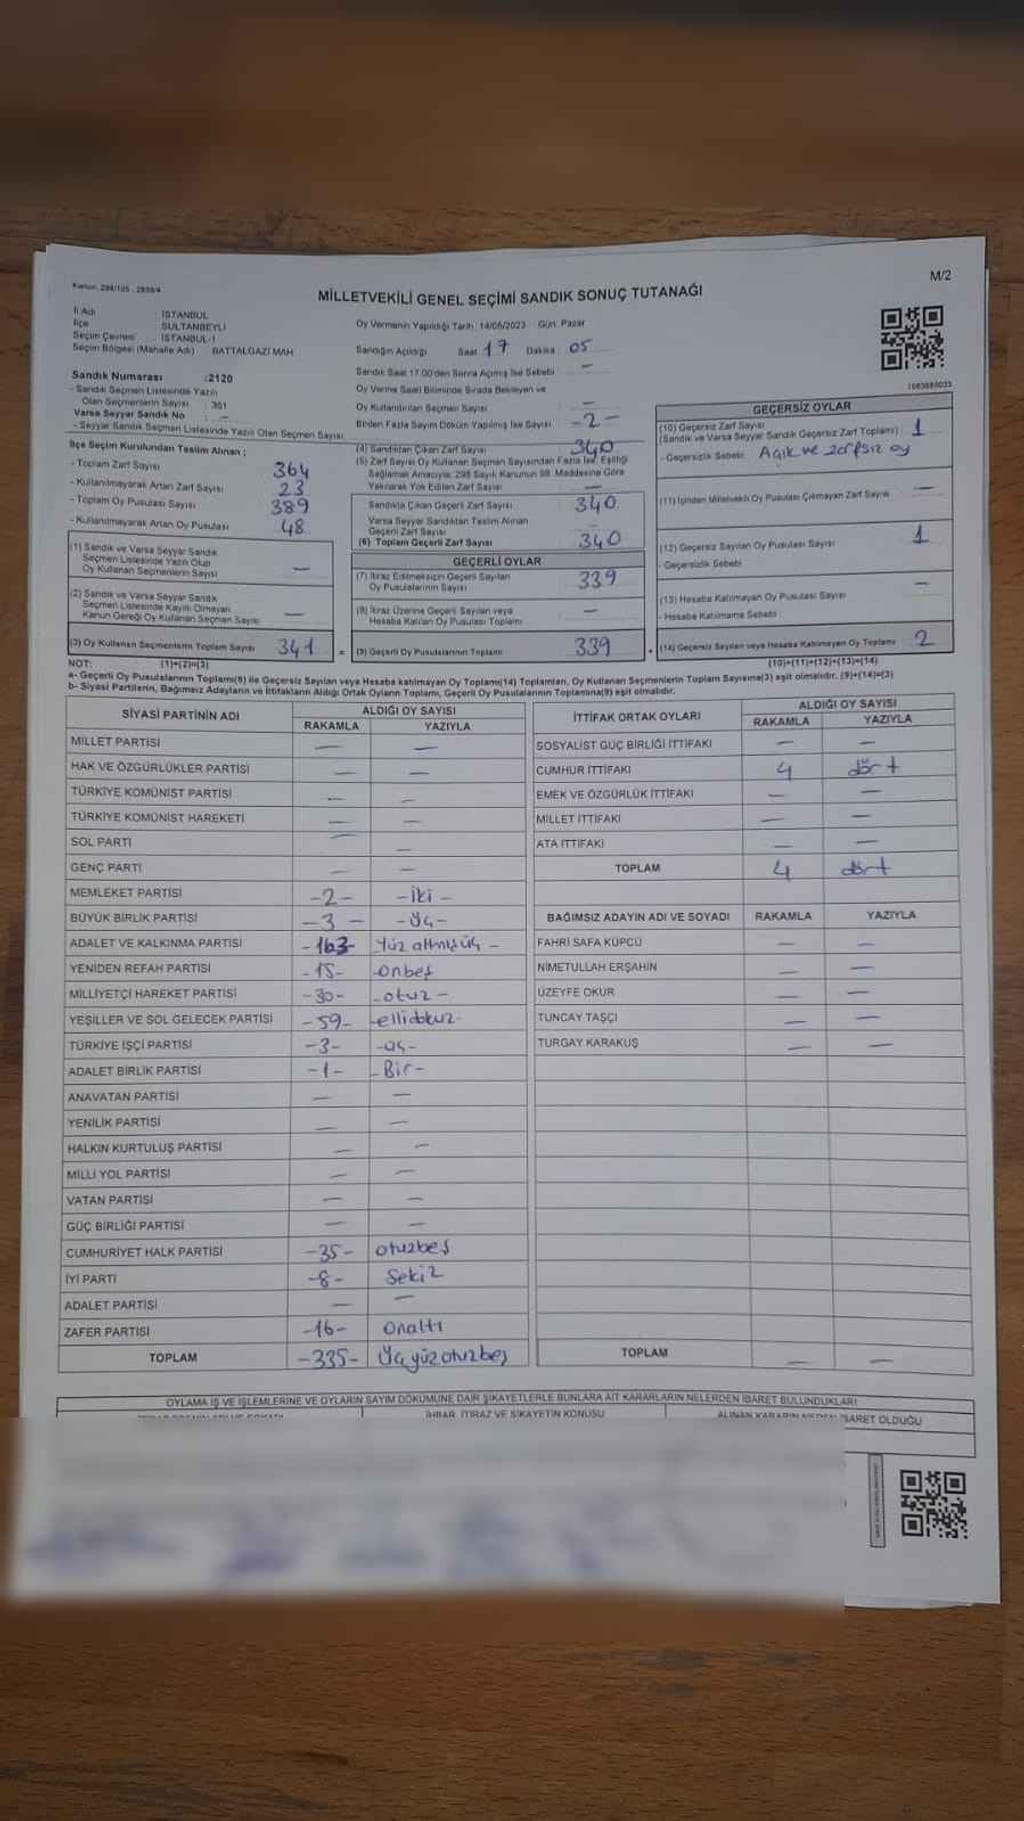 M/2
MİLLETVEKİLİ GENEL SEÇİMİ SANDIK SONUÇ TUTANAĞI
İl Adı : İSTANBUL
İlçe : SULTANBEYLİ
Seçim Çevresi : İSTANBUL-1
Seçim Bölgesi (Mahalle Adı) BATTALGAZİ MAH
Sandık Numarası :2120
- Sandık Seçmen Listesinde Yazılı
Olan Seçmenlerin Sayısı
Varsa Seyyar Sandık No : -
- Seyyar Sandık Seçmen Listesinde Yazılı Olan Seçmen Sayısı
İlçe Seçim Kurulundan Teslim Alınan ;
- Toplam Zarf Sayısı 364
- Kullanılmayarak Artan Zarf Sayısı 23
- Toplam Oy Pusulası Sayısı 389
- Kullanılmayarak Artan Oy Pusulası 48
(1) Sandık ve Varsa Seyyar Sandık
Seçmen Listesinde Yazılı Olup
Oy Kullanan Seçmenlerin Sayısı —
(2) Sandık ve Varsa Seyyar Sandık
Seçmen Listesinde Kayıtlı Olmayan
Kanun Gereği Oy Kullanan Seçmen Sayısı —
(3) Oy Kullanan Seçmenlerin Toplam Sayısı 341 =
Oy Vermenin Yapıldığı Tarih: 14/05/2023 Gün: Pazar
Sandığın Açıldığı Saat 17 Dakika 05
Sandık Saat 17.00'den Sonra Açılmış İse Sebebi —
Oy Verme Saati Bitiminde Sırada Bekleyen ve
Oy Kullandırılan Seçmen Sayısı —
Birden Fazla Sayım Döküm Yapılmış İse Sayısı -2-
(4) Sandıktan Çıkan Zarf Sayısı 340
(5) Zarf Sayısı Oy Kullanan Seçmen Sayısından Fazla İse, Eşitliği
Sağlamak Amacıyla; 298 Sayılı Kanunun 98. Maddesine Göre
Yakılarak Yok Edilen Zarf Sayısı —
Sandıkta Çıkan Geçerli Zarf Sayısı 340
Varsa Seyyar Sandıktan Teslim Alınan
Geçerli Zarf Sayısı
(6) Toplam Geçerli Zarf Sayısı 340
GEÇERLİ OYLAR
(7) İtiraz Edilmeksizin Geçerli Sayılan
Oy Pusulalarının Sayısı 339
(8) İtiraz Üzerine Geçerli Sayılan veya
Hesaba Katılan Oy Pusulası Toplamı —
(9) Geçerli Oy Pusulalarının Toplamı 339
GEÇERSİZ OYLAR
(10) Geçersiz Zarf Sayısı
(Sandık ve Varsa Seyyar Sandık Geçersiz Zarf Toplamı) 1
- Geçersizlik Sebebi: Açık ve zarfsız oy
(11) İçinden Milletvekili Oy Pusulası Çıkmayan Zarf Sayısı —
(12) Geçersiz Sayılan Oy Pusulası Sayısı 1
- Geçersizlik Sebebi
(13) Hesaba Katılmayan Oy Pusulası Sayısı —
- Hesaba Katılmama Sebebi
(14) Geçersiz Sayılan veya Hesaba Katılmayan Oy Toplamı 2
NOT: (1)+(2)=(3) (10)+(11)+(12)+(13)=(14)
a- Geçerli Oy Pusulasının Toplamı(9) ile Geçersiz Sayılan veya Hesaba katılmayan Oy Toplamı(14) Toplamları, Oy Kullanan Seçmenlerin Toplam Sayısına(3) eşit olmalıdır. (9)+(14)=(3)
b- Siyasi Partilerin, Bağımsız Adayların ve İttifakların Aldığı Ortak Oyların Toplamı, Geçerli Oy Pusulalarının Toplamına(9) eşit olmalıdır.
SİYASİ PARTİNİN ADI ALDIĞI OY SAYISI
RAKAMLA YAZIYLA
MİLLET PARTİSİ — —
HAK VE ÖZGÜRLÜKLER PARTİSİ — —
TÜRKİYE KOMÜNİST PARTİSİ — —
TÜRKİYE KOMÜNİST HAREKETİ — —
SOL PARTİ — —
GENÇ PARTİ — —
MEMLEKET PARTİSİ -2- -iki-
BÜYÜK BİRLİK PARTİSİ -3- -üç-
ADALET VE KALKINMA PARTİSİ -163- Yüz altmışüç -
YENİDEN REFAH PARTİSİ -15- -onbeş
MİLLİYETÇİ HAREKET PARTİSİ -30- -otuz-
YEŞİLLER VE SOL GELECEK PARTİSİ -59- -ellidokuz-
TÜRKİYE İŞÇİ PARTİSİ -3- -üç-
ADALET BİRLİK PARTİSİ -1- -Bir-
ANAVATAN PARTİSİ — —
YENİLİK PARTİSİ — —
HALKIN KURTULUŞ PARTİSİ — —
MİLLİ YOL PARTİSİ — —
VATAN PARTİSİ — —
GÜÇ BİRLİĞİ PARTİSİ — —
CUMHURİYET HALK PARTİSİ -35- otuzbeş
İYİ PARTİ -8- Sekiz
ADALET PARTİSİ — —
ZAFER PARTİSİ -16- Onaltı
TOPLAM -335- Üçyüzotuzbeş
İTTİFAK ORTAK OYLARI ALDIĞI OY SAYISI
RAKAMLA YAZIYLA
SOSYALİST GÜÇ BİRLİĞİ İTTİFAKI — —
CUMHUR İTTİFAKI 4 dört
EMEK VE ÖZGÜRLÜK İTTİFAKI — —
MİLLET İTTİFAKI — —
ATA İTTİFAKI — —
TOPLAM 4 dört
BAĞIMSIZ ADAYIN ADI VE SOYADI RAKAMLA YAZIYLA
FAHRİ SAFA KÜPCÜ — —
NİMETULLAH ERŞAHİN — —
ÜZEYFE OKUR — —
TUNCAY TAŞÇI — —
TURGAY KARAKUŞ — —
TOPLAM — —
OYLAMA İŞ VE İŞLEMLERİNE VE OYLARIN SAYIM DÖKÜMÜNE DAİR ŞİKAYETLERLE BUNLARA AİT KARARLARIN NELERDEN İBARET BULUNDUKLARI
İHBAR, İTİRAZ VE ŞİKAYETİN KONUSU